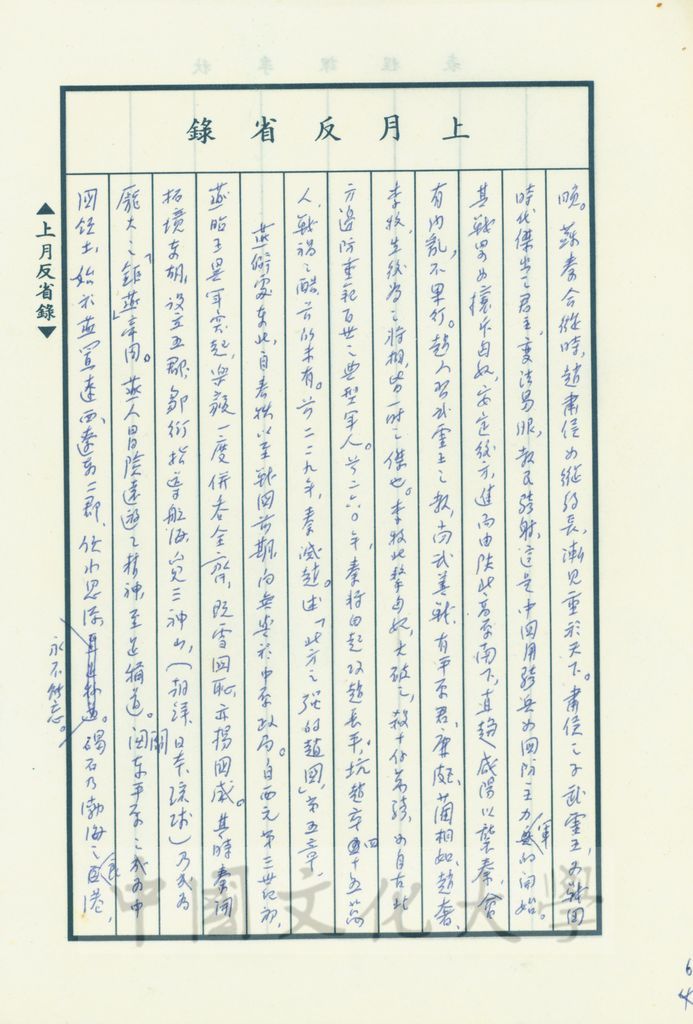 上月反省錄
順。蘇秦合縱時，趙肅侯為縱約長，漸見重於天下。肅侯之子武靈王，為戰國
時代傑出之君主，變法易服，教民騎射，這是中國用騎兵為國防主力軍的開始。
其戰略為攘斥匈奴，安定後方，進而由陝北高原南下，直趨咸陽以襲秦，會
有內亂，不果行。趙人習武靈王之教，尚武善戰，有平原君、廉頗、藺相如、趙奢、
李牧，先後為之將相，皆一時之傑也。李牧北擊匈奴，大破之，殺十餘萬騎，為自古北
方邊防重範百世之典型軍人。前二六〇年，秦將白起攻趙長平，坑趙卒四十五萬
人，戰禍之酷，前所未有。前二二九年，秦滅趙。述「北方之強的趙國」，第五章，
燕僻處東北，自春秋以至戰國前期，尚無與於中原政局。自西元前第三世紀初，
燕昭王異軍突起，樂毅一度併吞全齊，既雪國恥，亦揚國威。其時秦開
拓境東胡，設立五郡，鄒衍指導航海，以覓三神山，（朝鮮、日本、琉球）乃成為
龐大之「鉅燕」帝國。燕人冒險遠遊之精神，至足稱道。關東平原之成為中
國領土，始於燕置遼西遼東二郡，飲水思源，永不能忘。碣石乃渤海之良港，
▲上月反省錄▼
中國文化大學